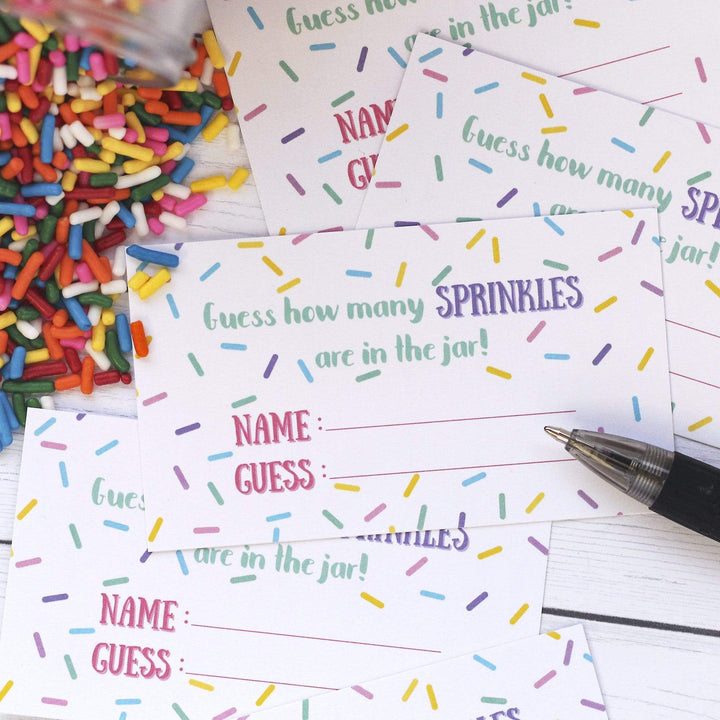 Guess how many
are in the jar!
NAM
GU
Guess how many SP
are in the jar!
Guess how many SPRINKLES
are in the jar!
NAME:
GUESS:
Guess
SPRINKLES
are in the jar!
NAME:
GUESS: